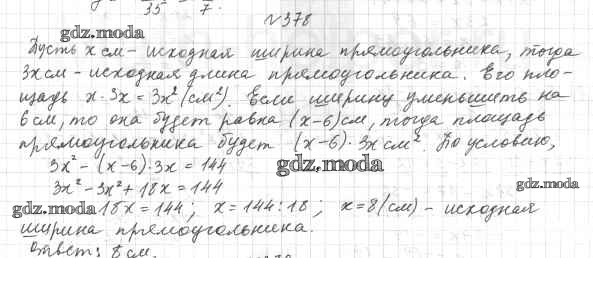 35 7.
№378
gdz.moda
Пусть x см - исходная ширина прямоугольника, тогда
3x см - исходная длина прямоугольника. Его пло-
щадь x · 3x = 3x² (см²). Если ширину уменьшить на
6 см, то она будет равна (x-6) см, тогда площадь
прямоугольника будет (x-6) · 3x см². По условию,
3x² - (x-6) · 3x = 144
gdz.moda
3x² - 3x² + 18x = 144
gdz.moda
gdz.moda 18x = 144; x = 144:18; x = 8 (см) - исходная
ширина прямоугольника.
Ответ: 8 см.